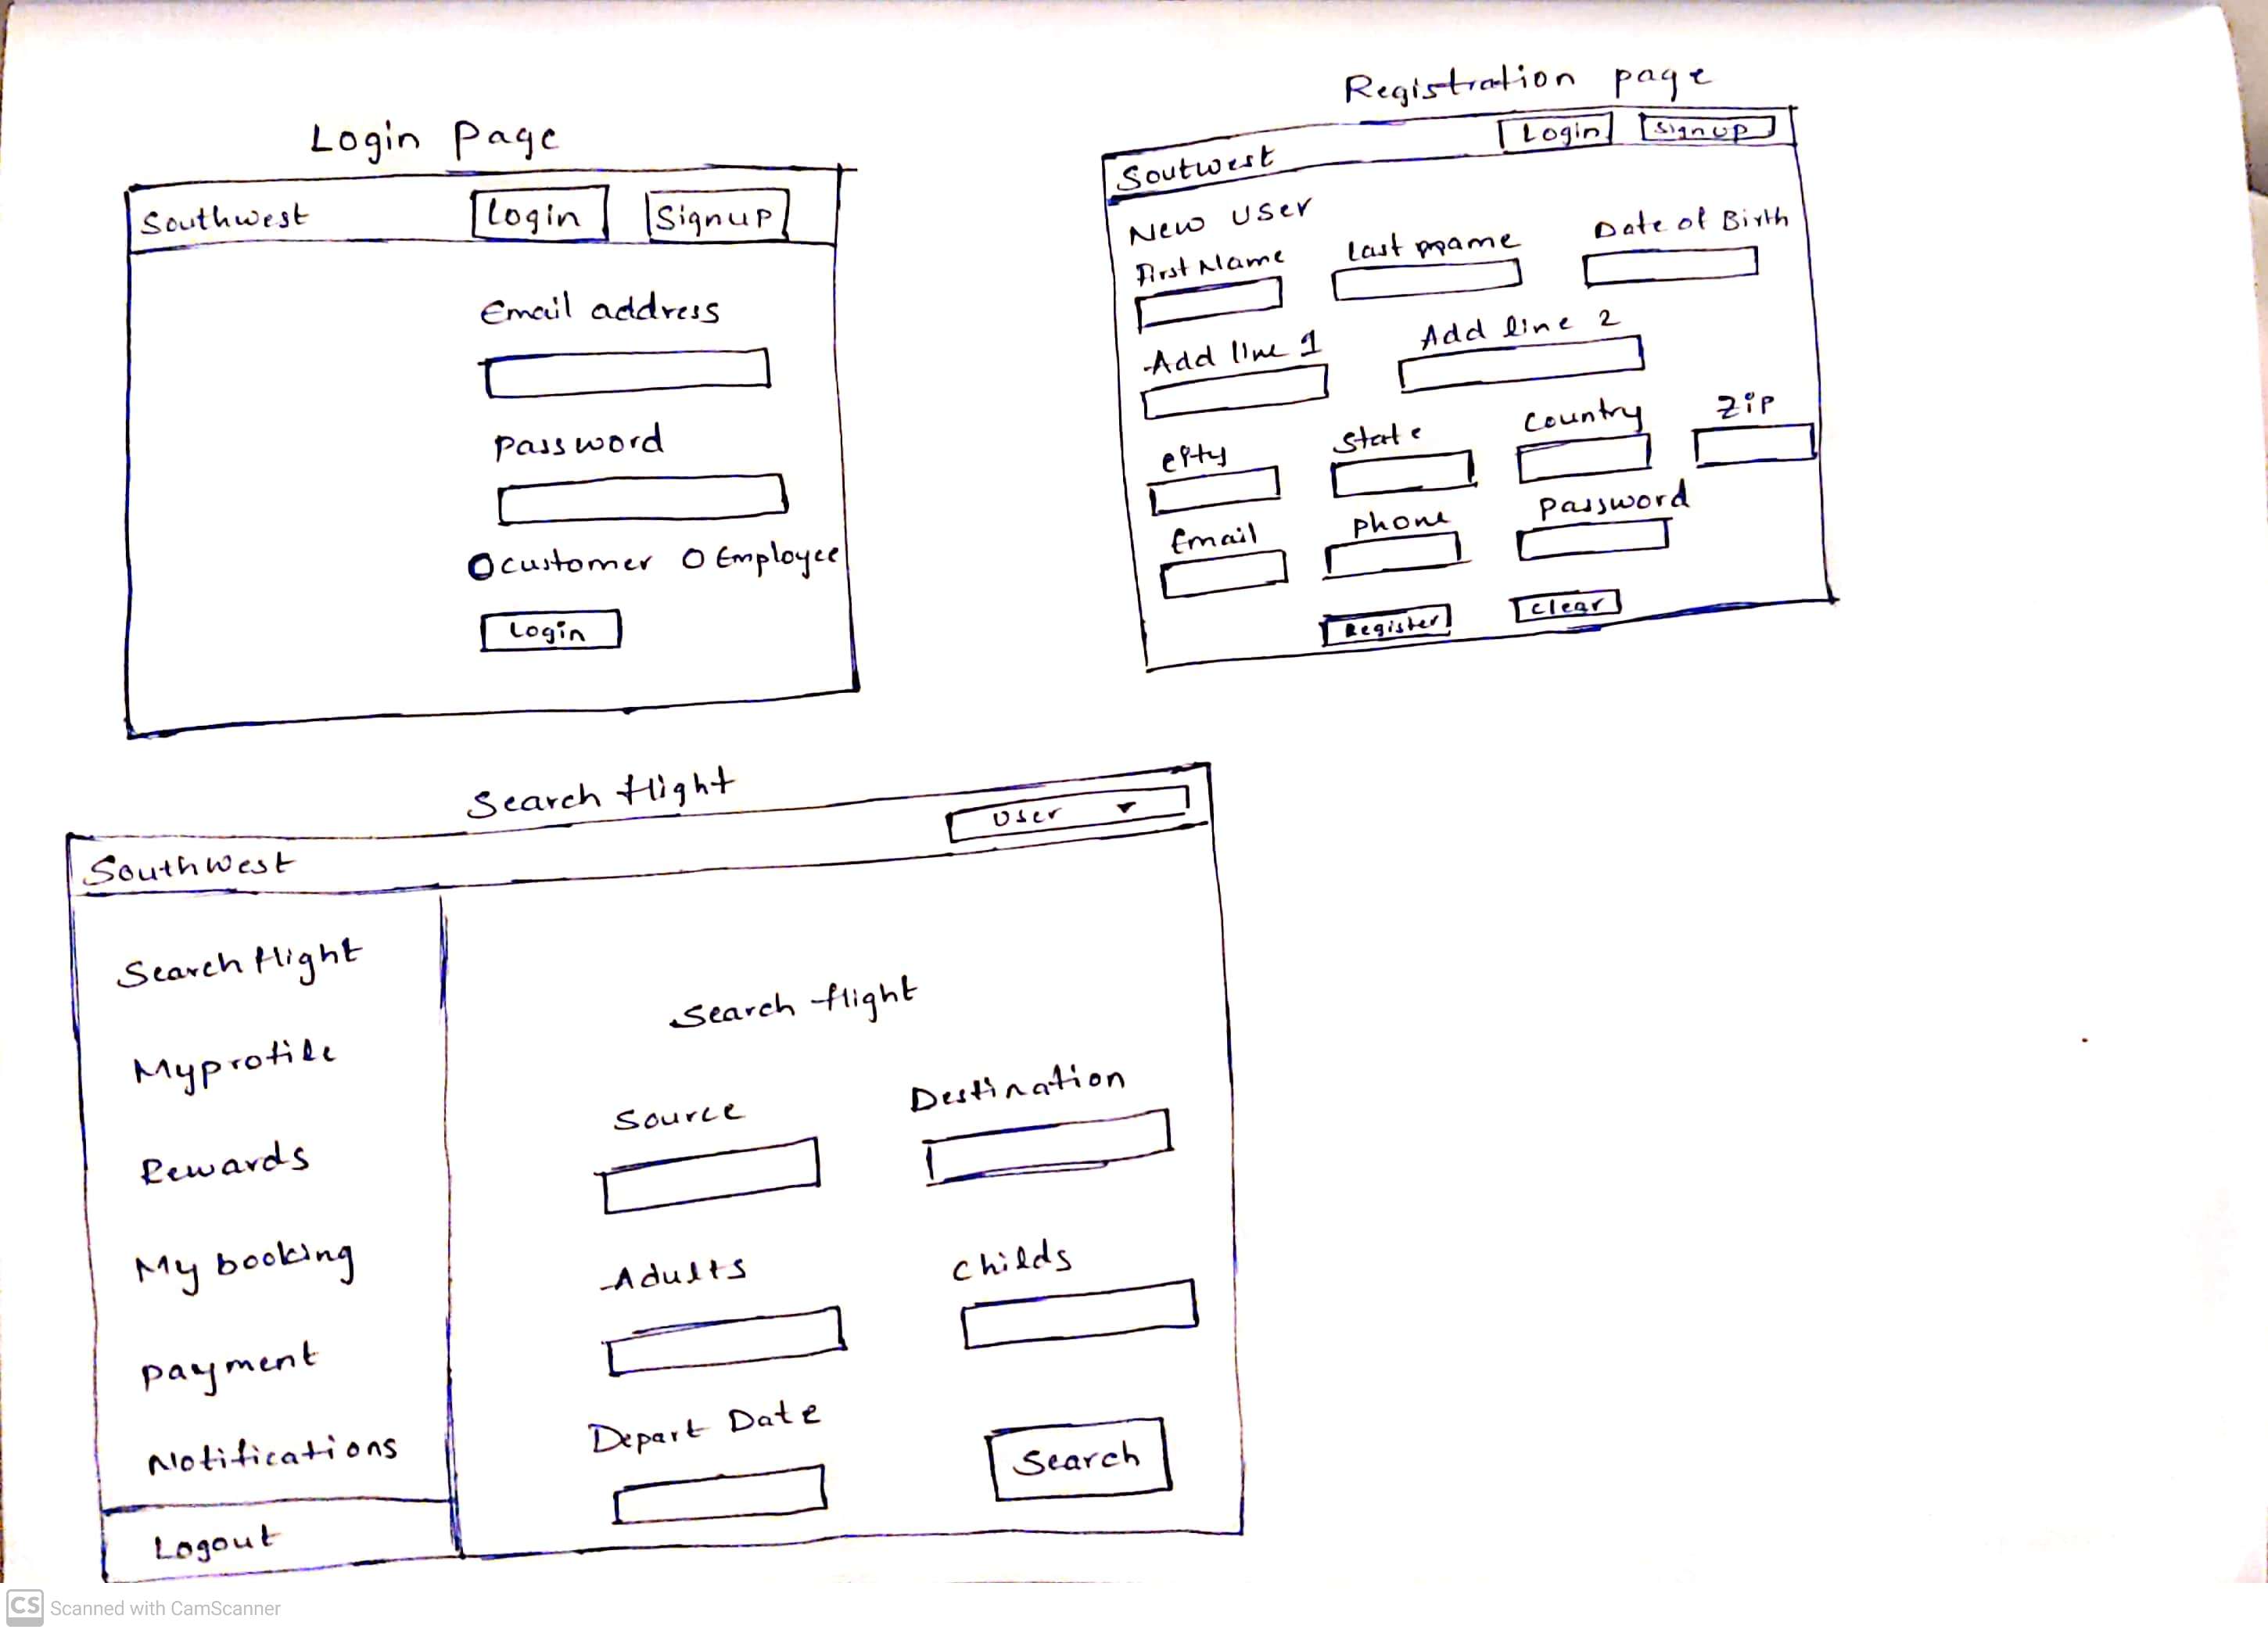 Login Page
Southwest Login Signup
Email address
Password
Customer Employee
Login
Registration page
Soutwest Login Signup
New User
First Name Last Name Date of Birth
Add line 1 Add line 2
City State Country Zip
Email phone Password
Register clear
Search flight
Southwest User
Search flight
My profile
Rewards
My booking
payment
Notifications
Logout
Search flight
Source Destination
Adults Childs
Depart Date
Search
CS Scanned with CamScanner